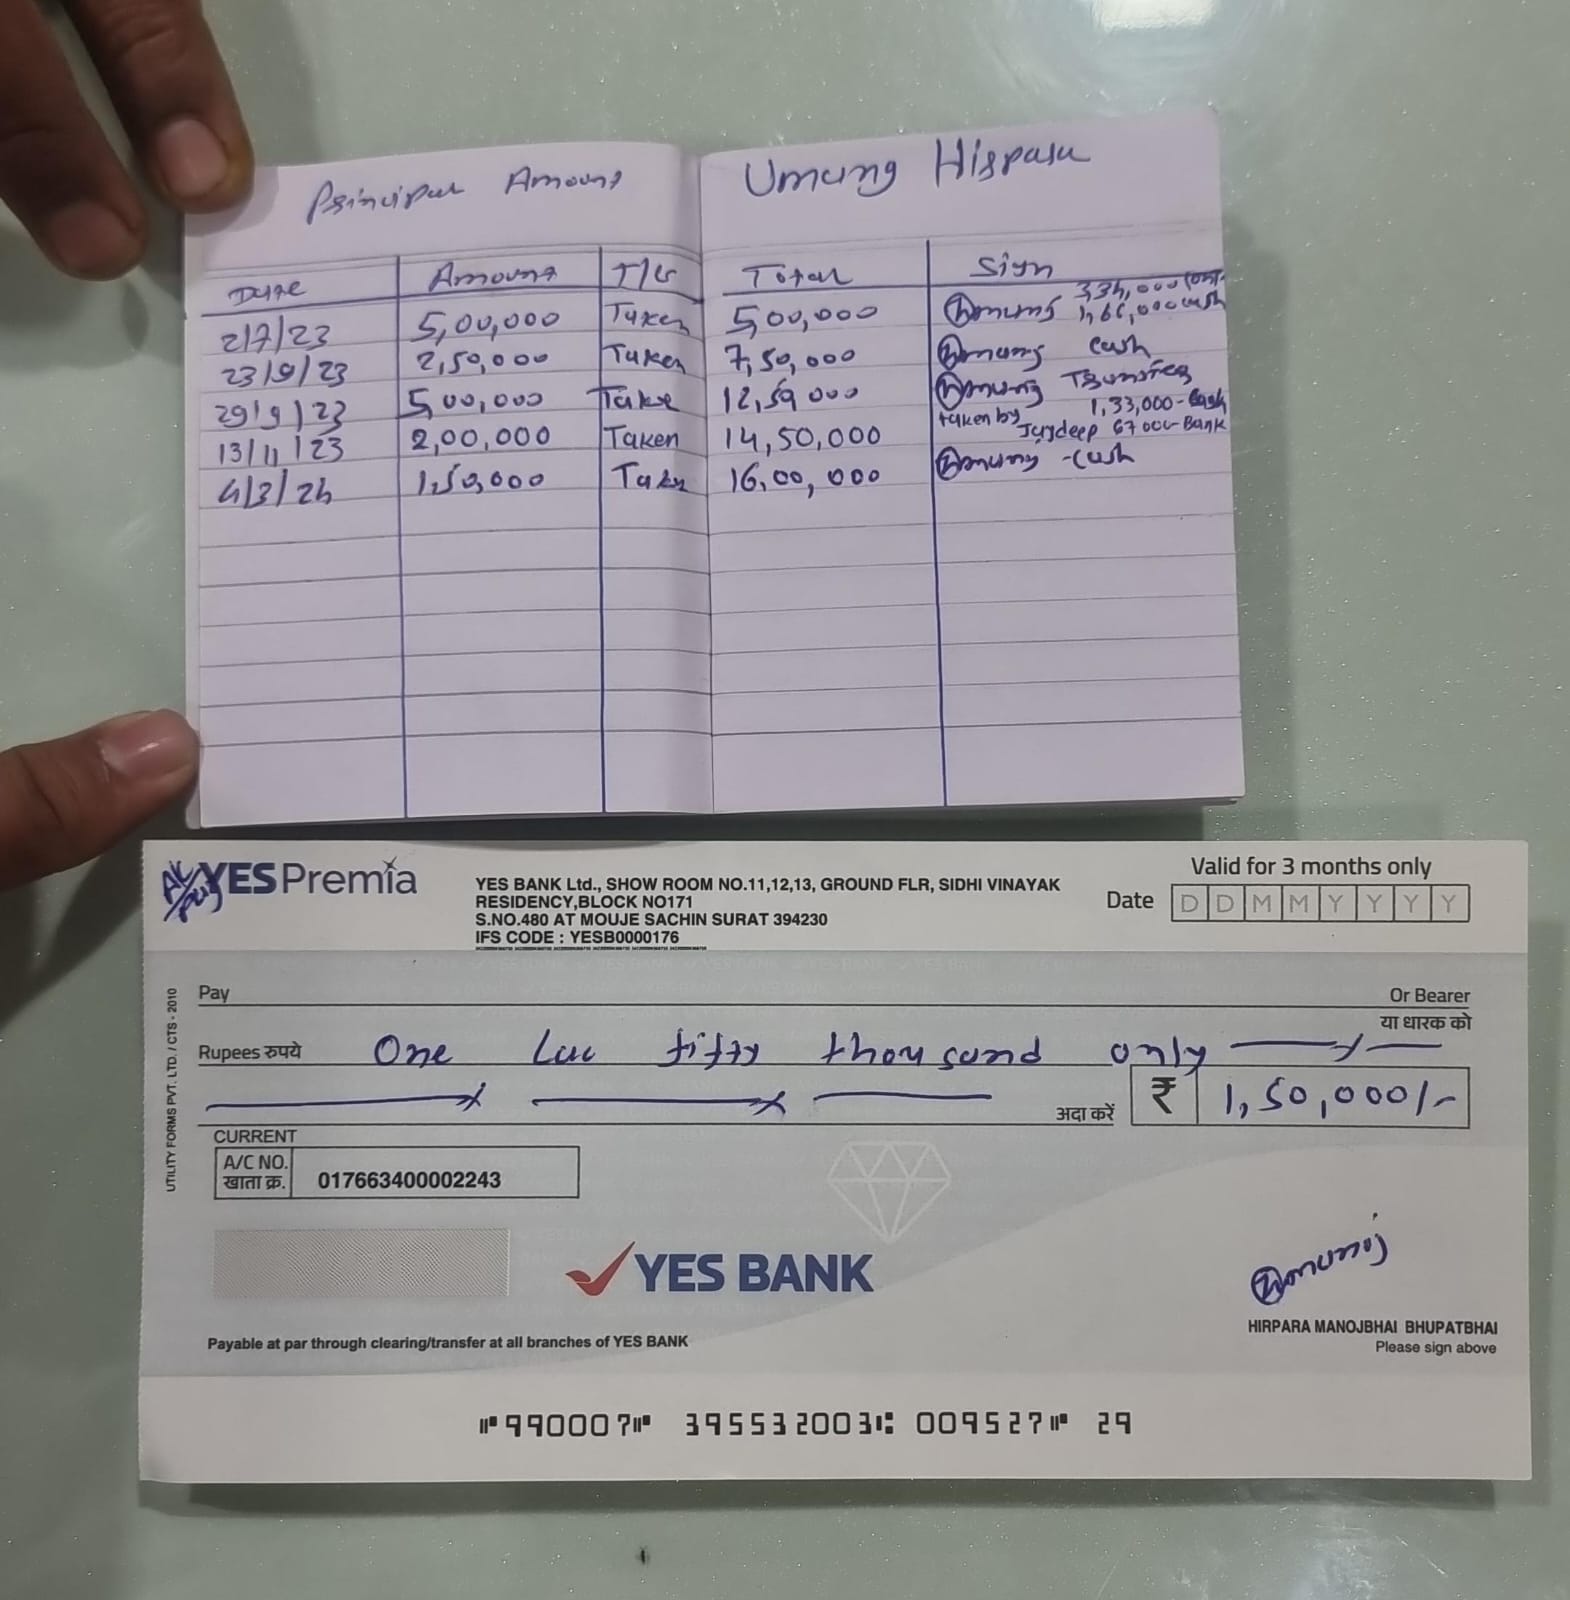 Principal Amount Umang Hirpara
Date Amount T/G Total Sign
2/7/23 5,00,000 Taken 5,00,000 Umang 3,34,000 1,66,000 cash
23/9/23 2,50,000 Taken 7,50,000 Umang cash
29/9/23 5,00,000 Take 12,50,000 Umang Transfer
13/11/23 2,00,000 Taken 14,50,000 taken by Jaydeep 1,33,000-Cash 67000-Bank
4/3/24 1,50,000 Taken 16,00,000 Umang -cash
A/c pay
YES Premia
YES BANK Ltd., SHOW ROOM NO.11,12,13, GROUND FLR, SIDHI VINAYAK
RESIDENCY,BLOCK NO171
S.NO.480 AT MOUJE SACHIN SURAT 394230
IFS CODE : YESB0000176
Valid for 3 months only
Date D D M M Y Y Y Y
UTILITY FORMS PVT. LTD. / CTS - 2010
Pay Or Bearer
या धारक को
Rupees रुपये One Lac fifty thousand only
अदा करें ₹ 1,50,000/-
CURRENT
A/C NO. 017663400002243
खाता क्र.
YES BANK
Umang
HIRPARA MANOJBHAI BHUPATBHAI
Please sign above
Payable at par through clearing/transfer at all branches of YES BANK
⑈990007⑈ 395532003⑆ 009527⑈ 29